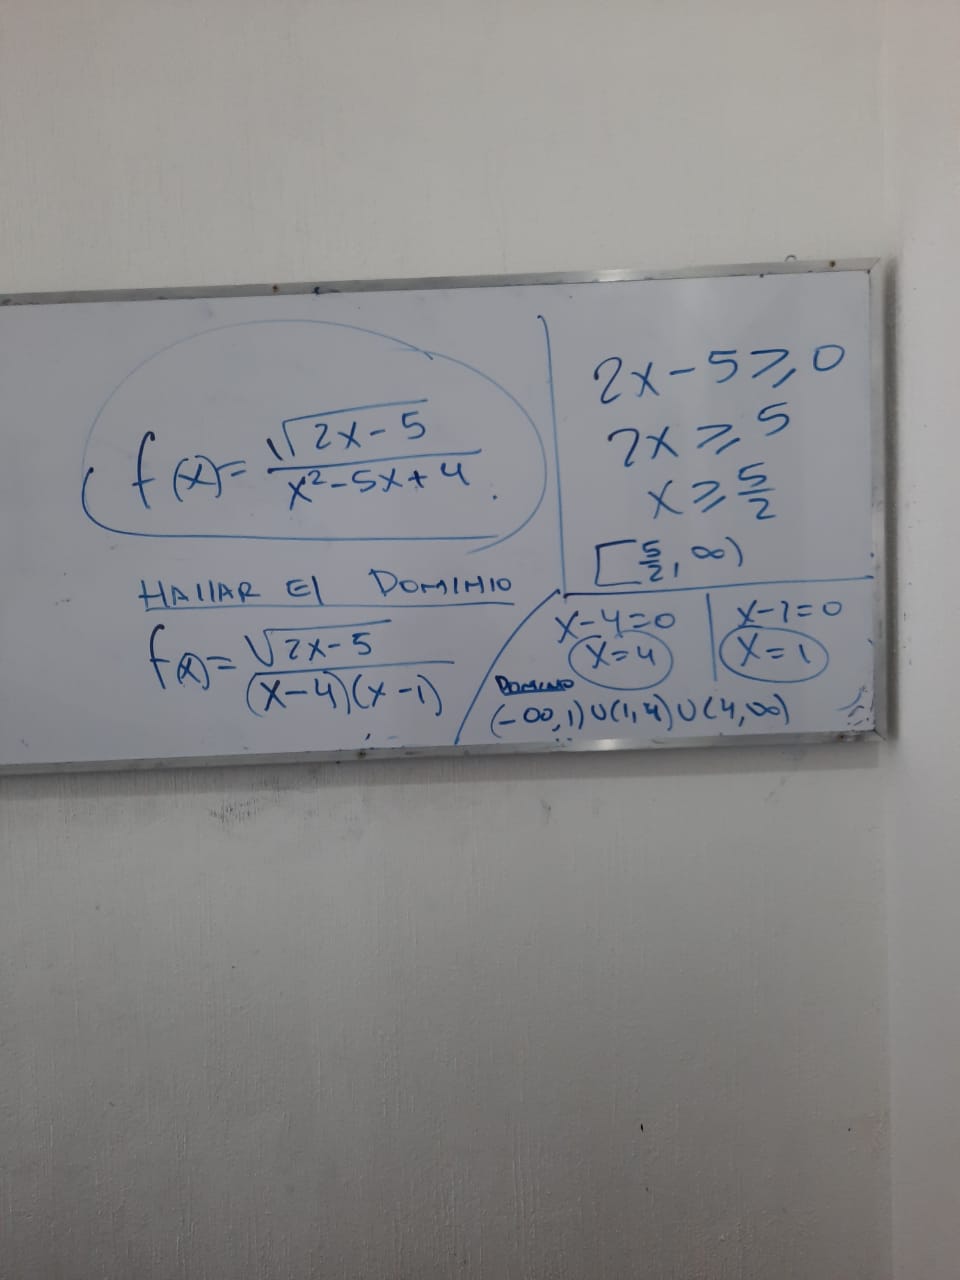 f(x)= √2x-5 / x²-5x+4.
HAllAR El DOMINIO
f(x)= √2x-5 / (x-4)(x-1)
2x-5⩾0
2x⩾5
x⩾5/2
[5/2, ∞)
x-4=0
x=4
x-1=0
x=1
DOMINIO
(-∞,1)∪(1,4)∪(4,∞)